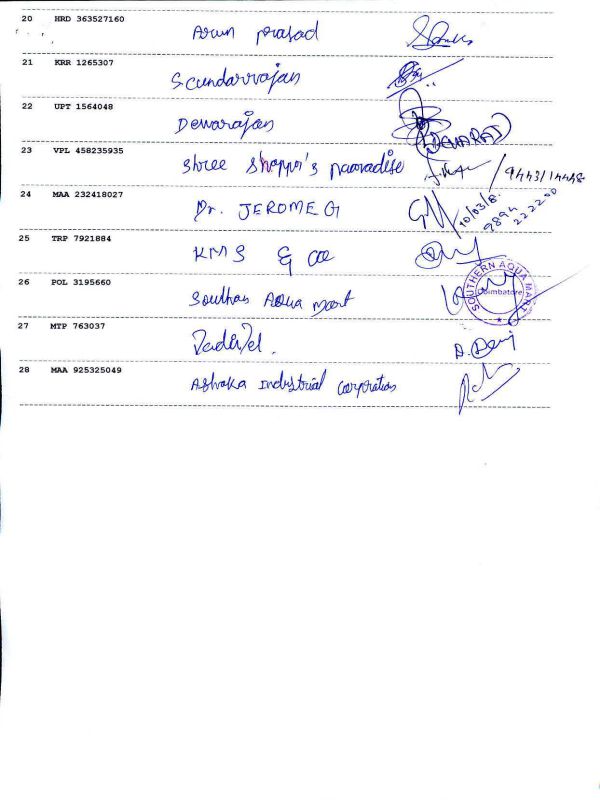 20 HRD 363527160 Arun prasad
21 KRR 1265307 Scundarrajan
22 UPT 1564048 Dewarajan
(DEVARAJ)
23 VPL 458235935 Shree Shappu's paaradise 9443/14448
24 MAA 232418027 Dr. JEROME G 10/03/8.
9894
222200
25 TRP 7921884 KMS & co
26 POL 3195660 Southan Aqua Mart
SOUTHERN AQUA MART
Coimbatore
27 MTP 763037 D. Devi
28 MAA 925325049 Ashoka Industrial Corporation